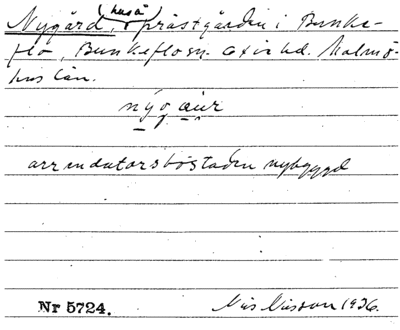 (husá)
Nygård, prästgården i Bunke-
flo, Bunkeflo sn. Oxie hd. Malmö-
hus län.
nýgau̯r
arrendatorsbostaden nybyggd
Nr 5724. Nils Nilsson 1926.